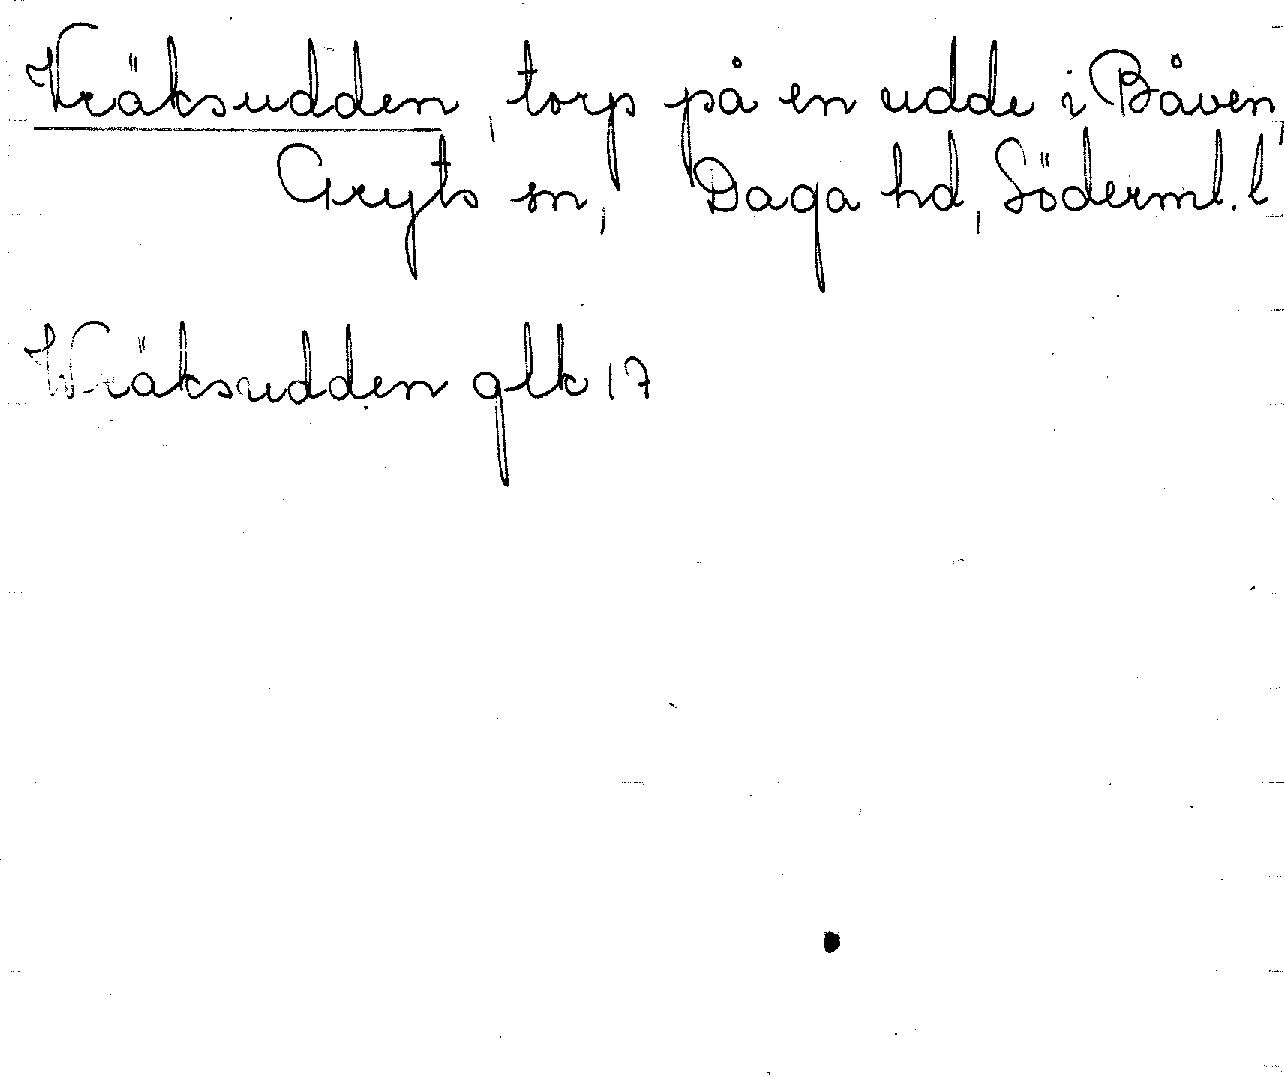 Vräksudden, torp på en udde i Båven,
Gryts sn, Daga hd, Söderml. l
Wräksudden glk 17